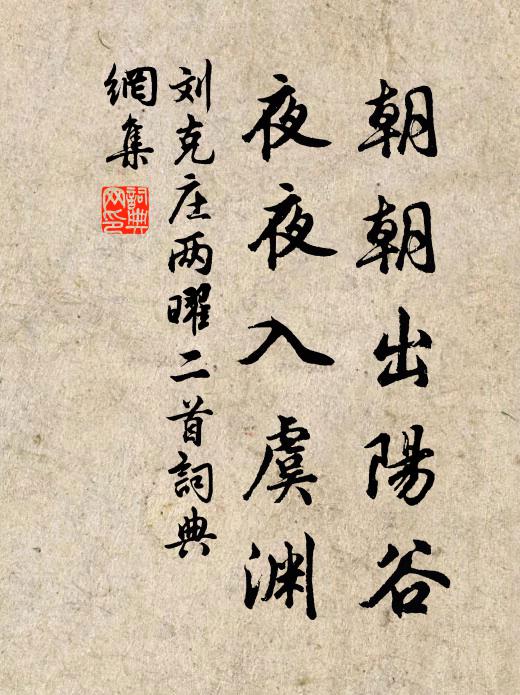 朝朝出陽谷
夜夜入虞渊
刘克庄两曜二首詞典
網集
詞典网印